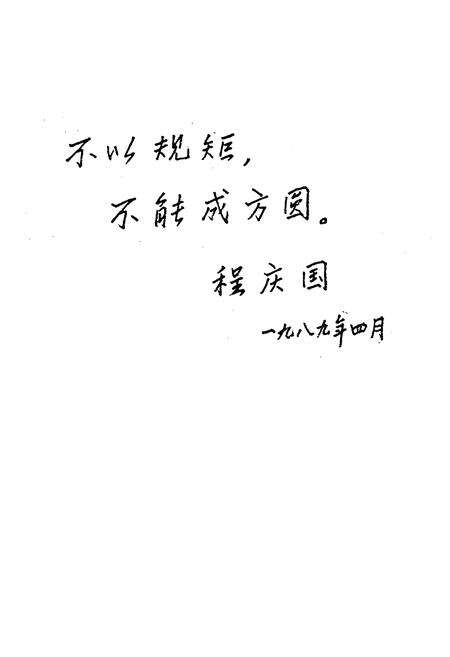 不以规矩，
不能成方圆。
程庆国
一九八九年四月